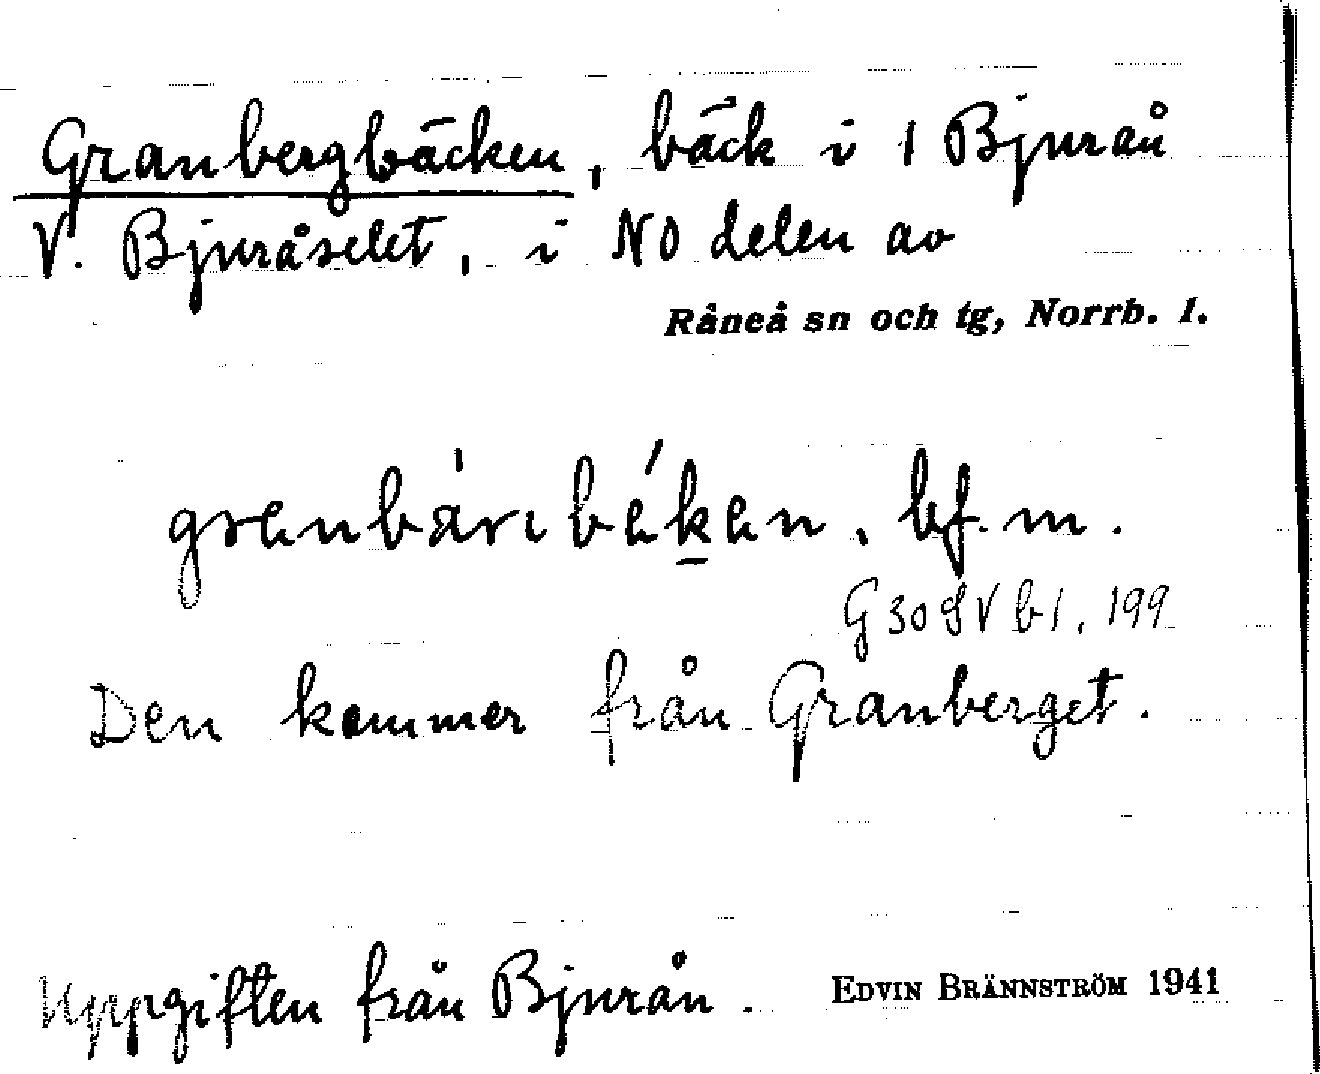 Granbergbäcken, bäck i 1 Bjurån
V. Bjuråselet, i NO delen av
Råneå sn och tg, Norrb. l.
granbárıbékan, bf. m.
G 30 SV b 1, 199
Den kommer från Granberget.
Uppgiften från Bjurån.
EDVIN BRÄNNSTRÖM 1941